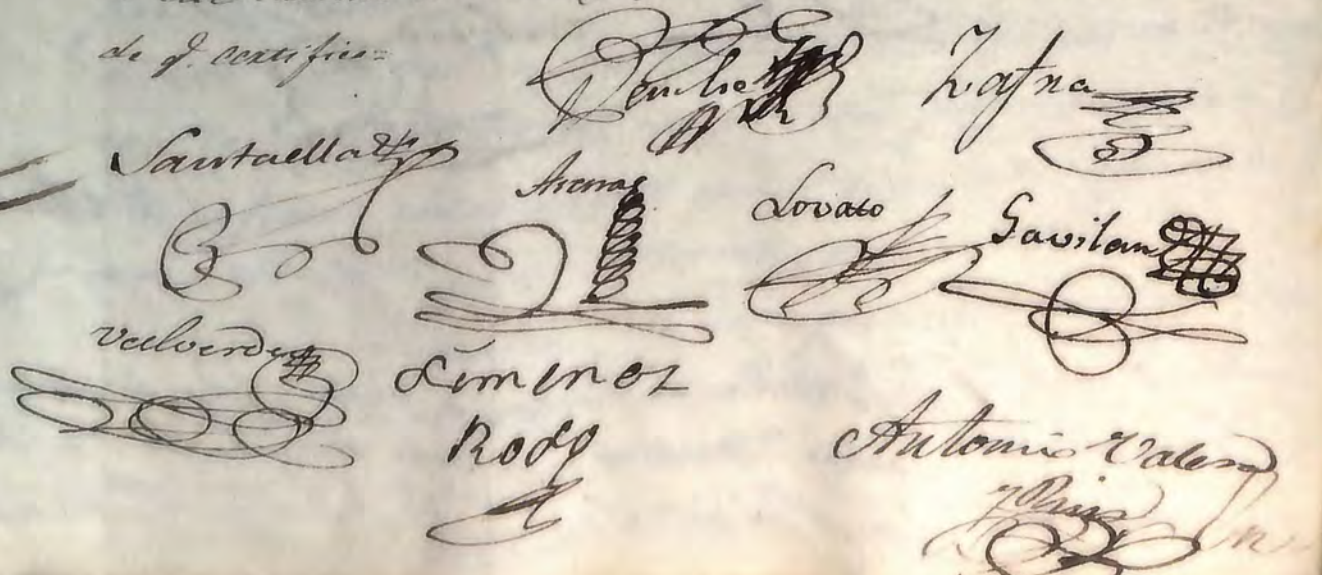 de q. certifico=
Zafra
Santaella
Arenas
Lovato
Gavilan
Valverde
Ximenez
Rodg
Antonio Valen
y Ruiz